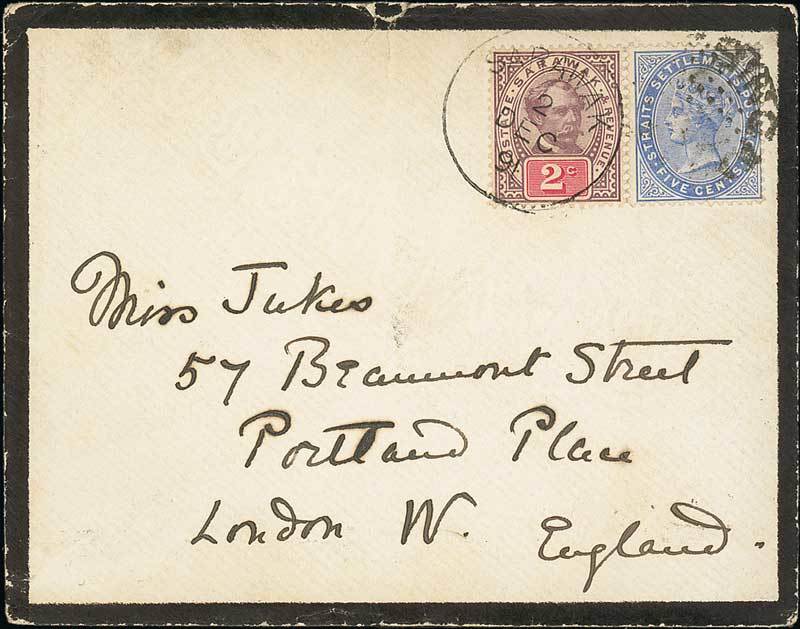 SARAWAK
POSTAGE SARAWAK & REVENUE
2c
STRAITS SETTLEMENTS
FIVE CENTS
Miss Jukes
57 Beaumont Street
Portland Place
London W. England.